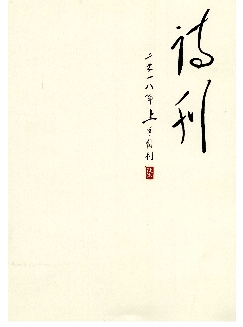 诗刊
二零一八年上半月刊